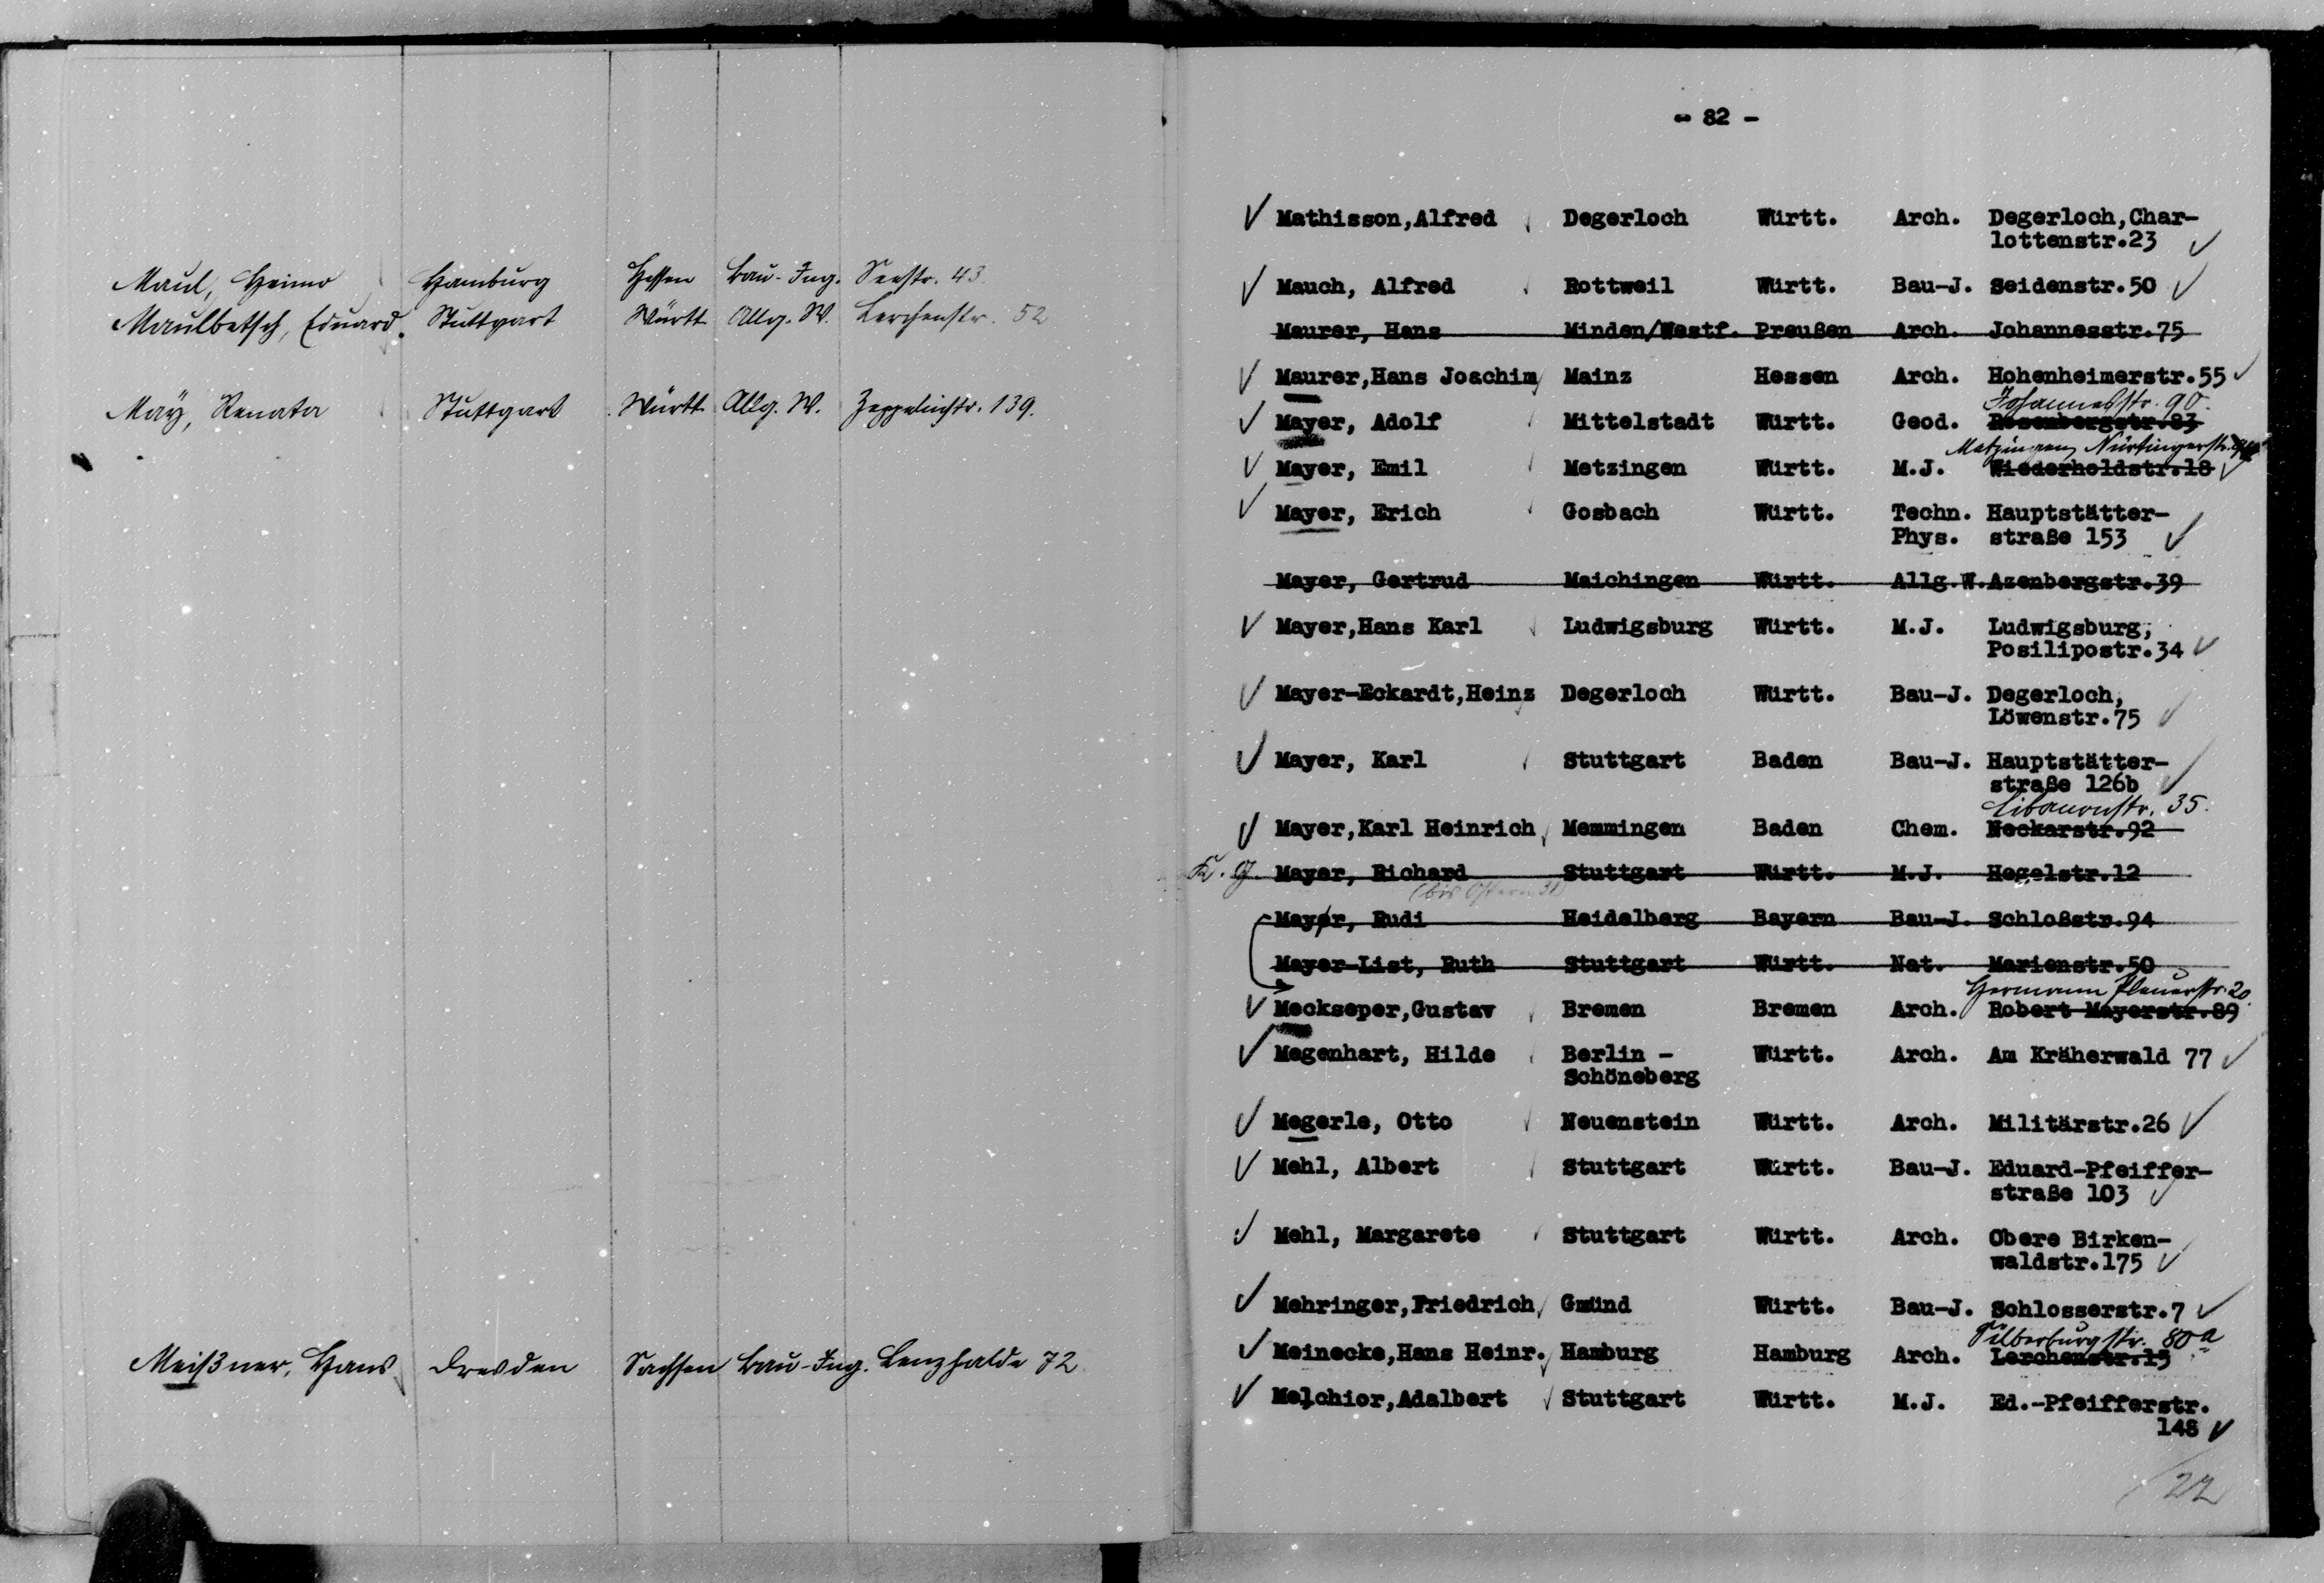 Maul, Heimo Hamburg Hessen Bau-Ing. Seestr. 43.
Maulbetsch, Eduard. Stuttgart Württ. Allg. W. Lerchenstr. 52
May, Renata Stuttgart Württ. Allg. W. Zeppelinstr. 139.
Meißner, Hans Dresden Sachsen Bau-Ing. Lenzhalde 72
- 82 -
Mathisson,Alfred Degerloch Württ. Arch. Degerloch,Char-
lottenstr.23
Mauch, Alfred Rottweil Württ. Bau-J. Seidenstr.50
Maurer, Hans Minden/Westf. Preußen Arch. Johannesstr.75
Maurer,Hans Joachim Mainz Hessen Arch. Hohenheimerstr.55
Johannesstr. 90.
Mayer, Adolf Mittelstadt Württ. Geod. Rosenbergstr.83
Metzingen, Nürtingerstr.
Mayer, Emil Metzingen Württ. M.J. Wiederholdstr.18
Mayer, Erich Gosbach Württ. Techn. Hauptstätter-
Phys. straße 153
Mayer, Gertrud Maichingen Württ. Allg.W. Azenbergstr.39
Mayer,Hans Karl Ludwigsburg Württ. M.J. Ludwigsburg,
Posilipostr.34
Mayer-Eckardt,Heinz Degerloch Württ. Bau-J. Degerloch,
Löwenstr.75
Mayer, Karl Stuttgart Baden Bau-J. Hauptstätter-
straße 126b
Libanonstr. 35.
Mayer,Karl Heinrich Memmingen Baden Chem. Neckarstr.92
Mayer, Richard Stuttgart Württ. M.J. Hegelstr.12
(bis Ostern 31)
Mayer, Rudi Heidelberg Bayern Bau-J. Schloßstr.94
Mayer-List, Ruth Stuttgart Württ. Nat. Marienstr.50
Hermann Pleuerstr. 20.
Meckseper,Gustav Bremen Bremen Arch. Robert Mayerstr.89
Megenhart, Hilde Berlin - Württ. Arch. Am Kräherwald 77
Schöneberg
Megerle, Otto Neuenstein Württ. Arch. Militärstr.26
Mehl, Albert Stuttgart Württ. Bau-J. Eduard-Pfeiffer-
straße 103
Mehl, Margarete Stuttgart Württ. Arch. Obere Birken-
waldstr.175
Mehringer,Friedrich Gmünd Württ. Bau-J. Schlosserstr.7
Silberburgstr. 80a
Meinecke,Hans Heinr. Hamburg Hamburg Arch. Lerchenstr.15
Melchior,Adalbert Stuttgart Württ. M.J. Ed.-Pfeifferstr.
148
22